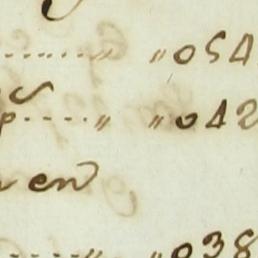 ........ „ „ 054
p..... „ „ 042
en
..... „ „ 038